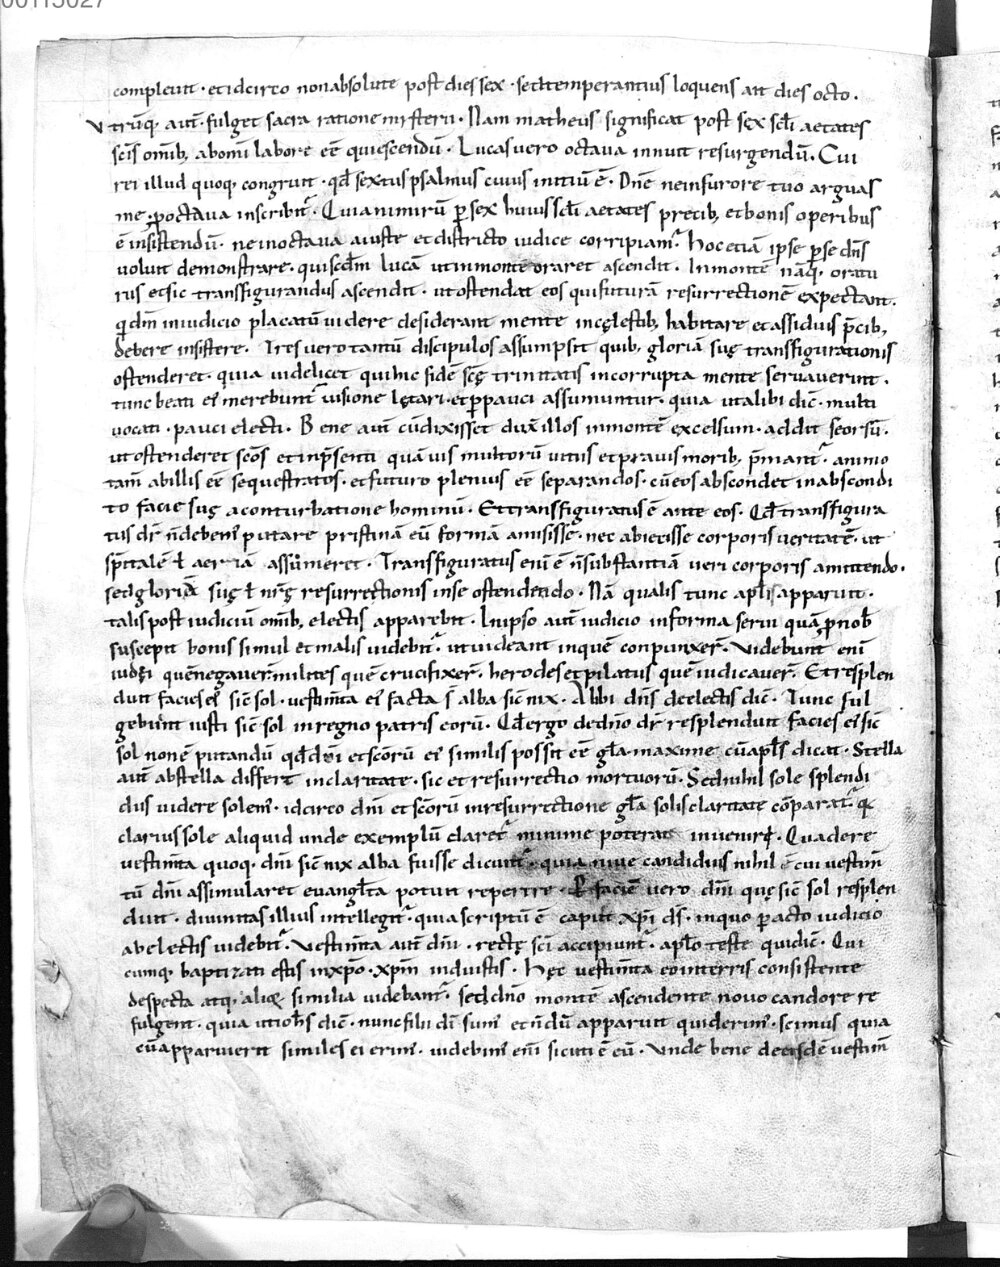 00115027
compleuit · et idcirco non absolute post dies sex · sed temperantius loquens ait dies octo .
Vtrūq; aut̄ · fulget sacra ratione misterii · Nam matheus significat post sex sc̄li aetates
sc̄is om̄ib; ab om̄i labore eē quiescendū · Lucas uero octaua innuit resurgendū . Cui
rei illud quoq; congruit · qđ sextus psalmus cuius initiū ē · Dn̄e ne in furore tuo arguas
me · p octaua inscribit̄ . Quia nimirū p sex huius sc̄li aetates precib; et bonis operibus
ē insistendū · ne in octaua a iuste et districto iudice corripiam̄ . hoc etiā ipse p se dn̄s
uoluit demonstrare · qui scđm lucā ut in monte oraret ascendit . In montē nāq; oratu
rus et sic transfigurandus ascendit · ut ostendat eos qui futurā resurrectionē expectant .
q dn̄m in iudicio placatū uidere desiderant mente in cęlestib; habitare et assiduis p̄cib;
debere insistere . Tres uero tantū discipulos assumpsit quib; gloriā suę transfigurationis
ostenderet · quia uidelicet qui hic fidē sc̄ę trinitatis incorrupta mente seruauerint .
tunc beati ei merebunt̄ uisione lętari · et p pauci assumuntur · quia ut alibi dic̄ · multi
uocati · pauci electi . Bene aut̄ cū dixisset duā illos in montē excelsum · addit seorsū .
ut ostenderet sc̄os et in p̄senti quā uis multorū uitiis et prauis morib; p̄mant̄ · animo
tam̄ ab illis eē sequestratos · et futuro plenius eē separandos · cū eos abscondet in abscondi
to facie suę a conturbatione hominū . Et transfiguratus ē ante eos . Qđ transfigura
tus dr̄ n̄ debem̄ putare pristinā eū formā amisisse · nec abiecisse corporis ueritatē · ut
sp̄italē ł aeriā assūmeret . Transfiguratus eni ē n̄ substantiā ueri corporis amittendo .
sed gloriā suę ł nr̄ę resurrectionis in se ostendendo . Nā qualis tunc apl̄is apparuit .
talis post iudiciū om̄ib; electis apparebit . In ipso aut̄ iudicio in forma serui quā p nob̄
suscepit bonis simul et malis uidebit̄ . ut uideant in quem conpunxer̄ . Videbunt eni
iudęi quē negauer̄ milites quē crucifixer̄ · herodes et pilatus quē iudicauer̄ . Et resplen
duit facies ei sic̄ sol · uestim̄ta ei facta s̄ alba sic̄ nix . Alibi dn̄s de electis dic̄ . Tunc ful
gebunt iusti sic̄ sol in regno patris eorū . Qđ ergo de dn̄o dr̄ resplenduit facies ei sic̄
sol non ē putandū qđ dn̄i et sc̄orū ei similis possit eē gła · maxime cū apl̄s dicat · Stella
aut̄ ab stella differt in claritate · sic et resurrectio mortuorū . Sed nihil sole splendi
dius uidere solem̄ · idcirco dn̄i et sc̄orū in resurrectione gła solis claritate cōparat̄ · q
clarius sole aliquid unde exemplū daret̄ minime poterat inuenire . Qua de re
uestim̄ta quoq; dn̄i sic̄ nix alba fuisse dicunt̄ · quia niue candidius nihil ē cui uestim̄
tū dn̄i assimularet euangl̄ta potuit reperire . P faciē uero dn̄i quę sic̄ sol resplen
duit · diuinitas illius intellegit̄ · quia scriptū ē caput xp̄i ds̄ · in quo p acto iudicio
ab electis uidebit̄ . Vestim̄ta aut̄ dn̄i · rectę sc̄i accipiunt̄ · apl̄o teste qui dic̄ . Qui
cumq; baptizati estis in xp̄o · xp̄m induistis . Hęc uestim̄ta eo in terris consistente
despecta atq; aliis similia uidebant̄ · sed dn̄o montē ascendente nouo candore re
fulgent · quia ut ioh̄s dic̄ · nunc filii dī sum̄ et n̄dū apparuit quid erim̄ · scimus quia
cū apparuerit similes ei erim̄ · uidebim̄ eni sicuti ē eū . Vnde bene de eisdē uestim̄